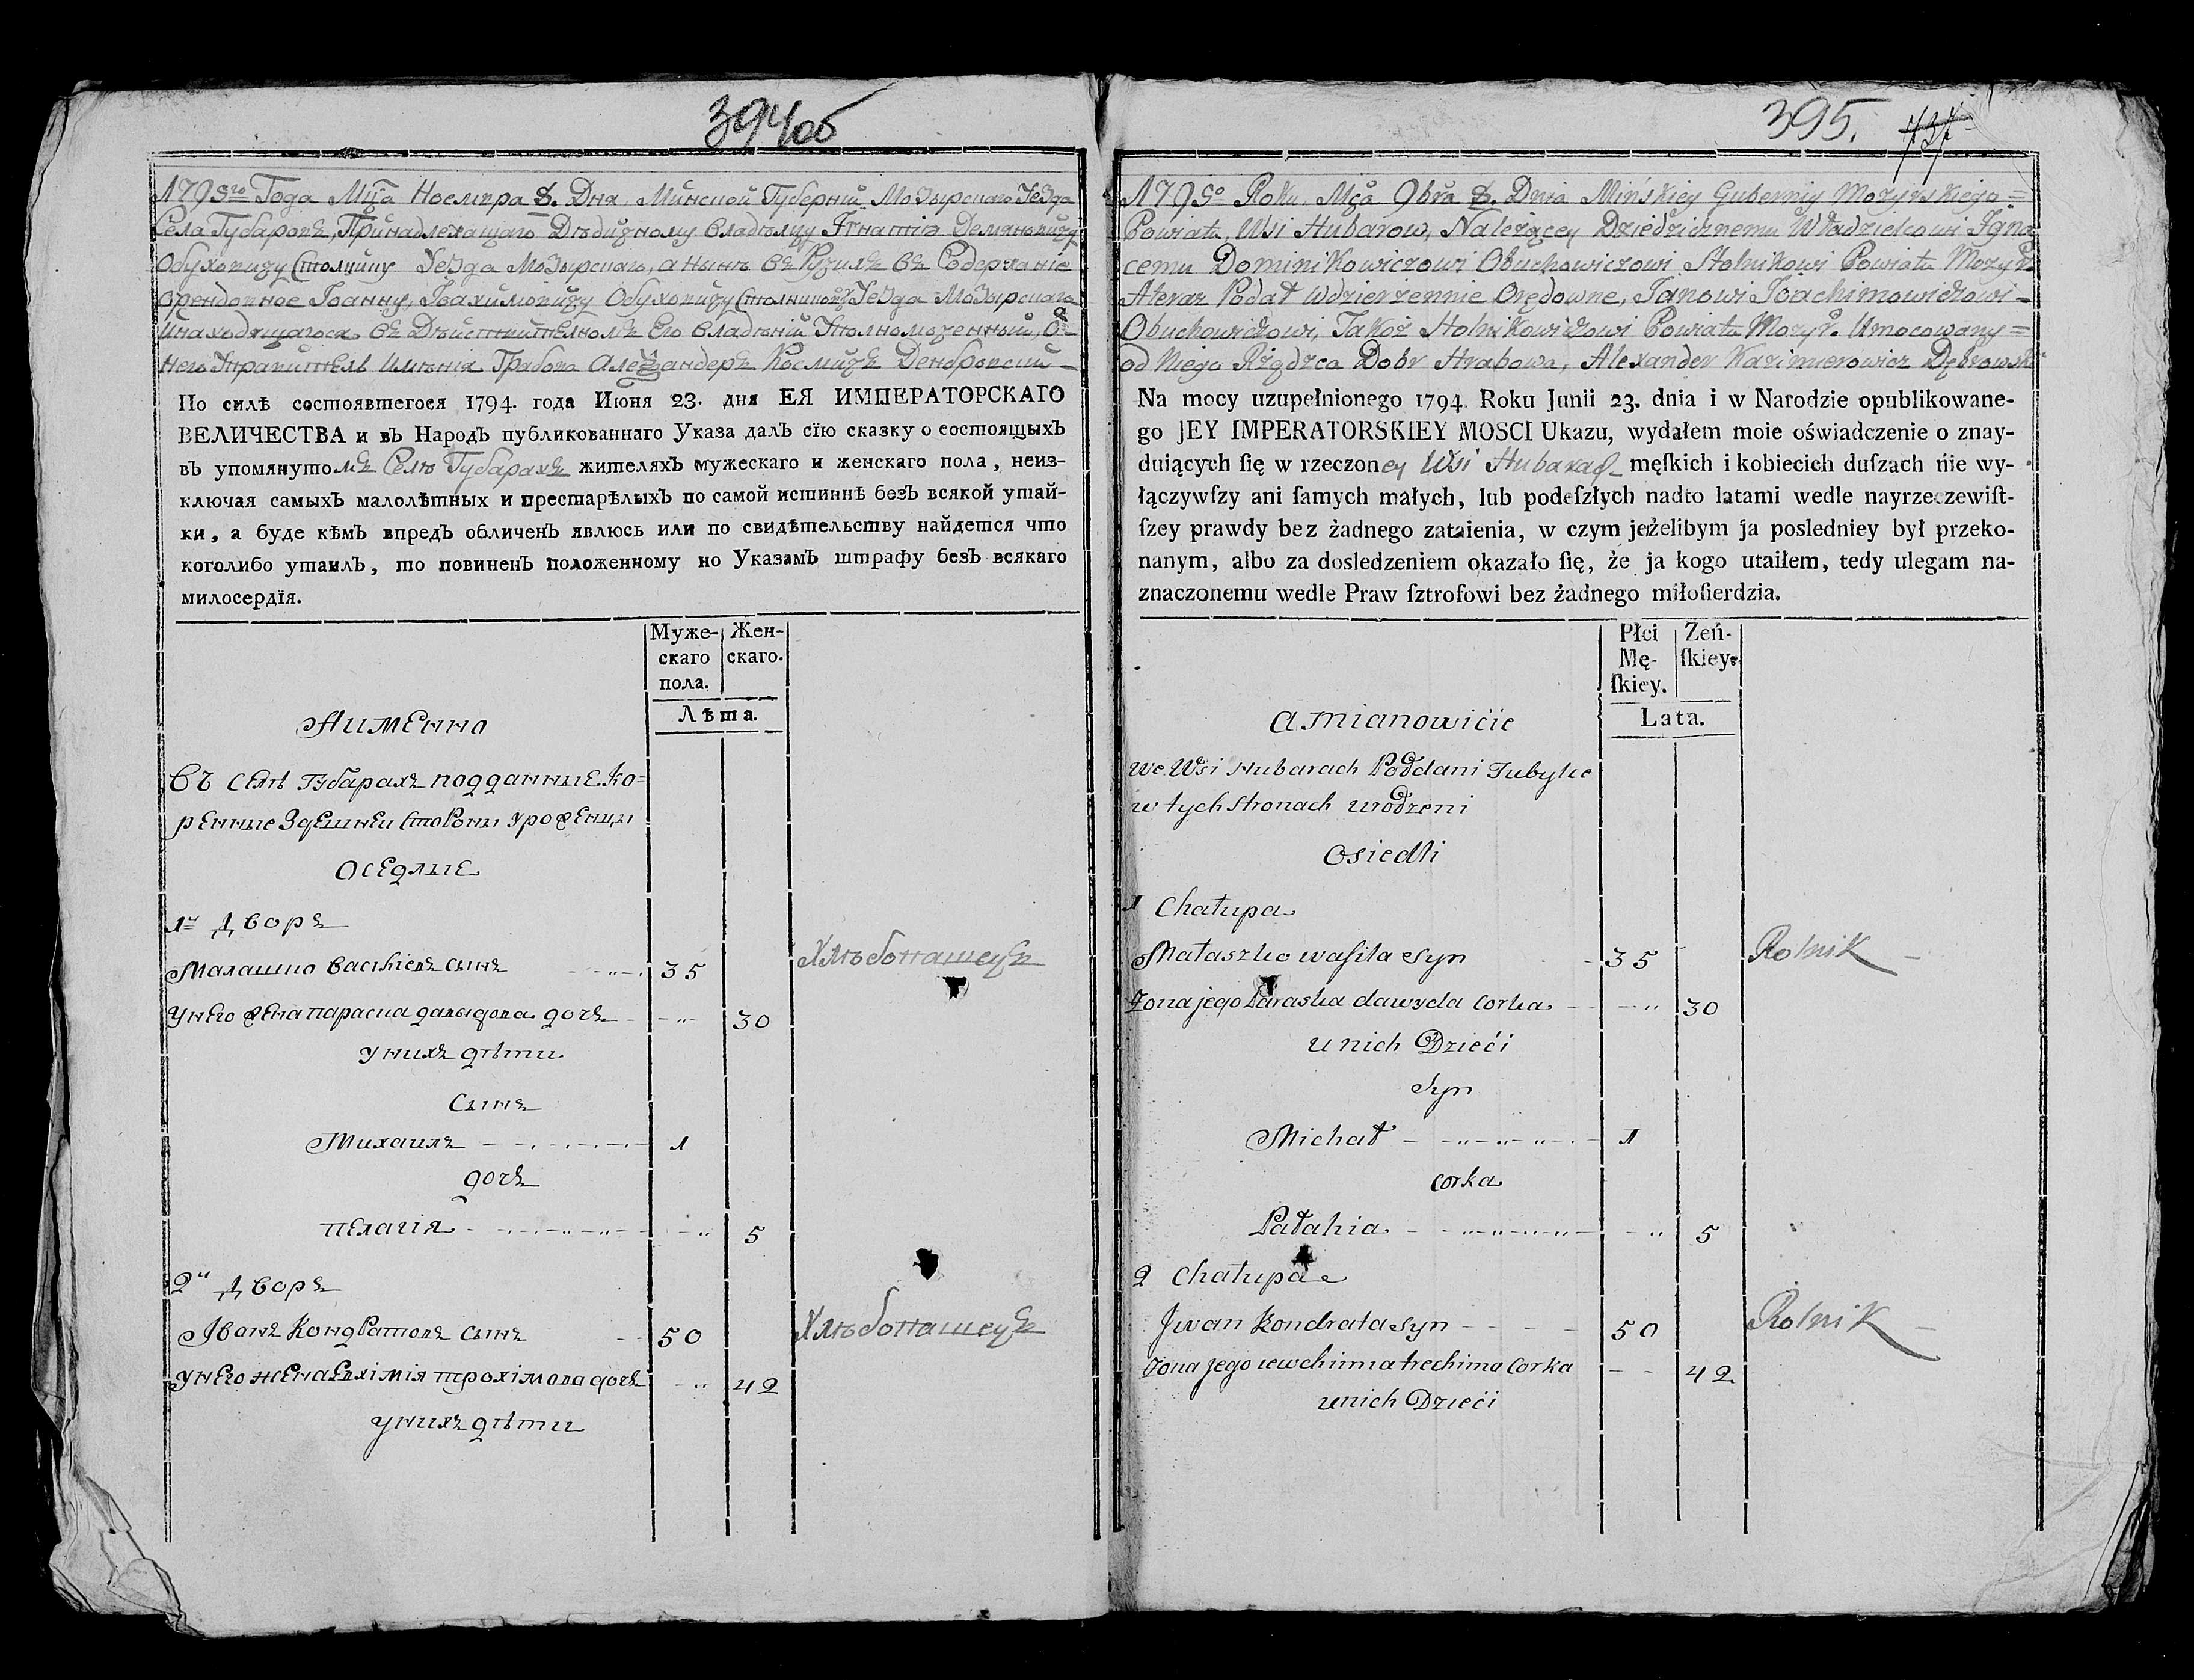 394об
1795го Года Мца Ноемвра 8. Дня Минской Губерній Мозырскаго Уезда
Села Губаровъ, Принадлежащаго Дѣдичному Владѣлцу Игнатію
Обуховичу Столнику Уезда Мозырскаго, а нынѣ въ Содержаніе
Арендовное Іоанну, Іоахимовичу Обуховичу Уезда Мозырскаго
Инаходящагося въ Дѣиствителномъ Его Владѣніи Уполномоченный, Отъ
Него Управитель Имѣнія Грабова Александеръ Дембровский
По силѣ состоявшегося 1794. года Июня 23. дня ЕЯ ИМПЕРАТОРСКАГО
ВЕЛИЧЕСТВА и въ Народъ публикованнаго Указа далъ сїю сказку о состоящыхъ
въ упомянутомъ Селѣ Губарахъ жителяхъ мужескаго и женскаго пола, неиз-
ключая самыхъ малолѣтных и престарѣлыхъ по самой истиннѣ безъ всякой утай-
ки, а буде кѣмъ впредъ обличенъ явлюсь или по свидѣтельству найдется что
коголибо утаилъ, то повиненъ положенному но Указамъ штрафу безъ всякаго
милосердїя.
Муже-
скаго
пола.
Жен-
скаго.
Лѣта.
Аименно
Въ селѣ Губарахъ подданные ко=
ренные Здешнеи стороны уроженцы
оседлые
1й Дворъ
Малашко Васиіевъ сынъ 35 Хлѣбопашецъ
унего жена параска давыдова дочъ 30
унихъ дѣти
сынъ
Михаилъ 1
дочъ
пелагія 5
2й Дворъ
Іванъ Кондратовъ сынъ 50 Хлѣбопашецъ
унего жена Евхімія трохімова дочъ 42
унихъ дѣти
395. 737
1795o Roku Mca 9bra 8. Dnia Mińskiey Gubernij Mozyrskiego=
Powiatu, Wsi Hubarow, Należącey Dziedzicznemu Władzielcowi Igna
cemu Dominikowiczowi Obuchowiczowi Stolnikowi Powiatu Mozyr.
Ateraz Podał Wdzierżennie Orędowne, Janowi Joachimowiczowi
Obuchowiczowi, Takoż Stolnikowiczowi Powiatu Mozyr. Umocowany=
od Niego Rządzca Dobr Hrabowa, Alexander Kazimierowicz Dębrowski
Na mocy uzupełnionego 1794 Roku Junii 23. dnia i w Narodzie opublikowane-
go JEY IMPERATORSKIEY MOSCI Ukazu, wydałem moie oświadczenie o znay-
duiących ſię w rzeczoney Wsi Hubarach męſkich i kobiecich duſzach nie wy-
łączywſzy ani ſamych małych, lub podeſzłych nadto latami wedle nayrzeczewiſt-
ſzey prawdy bez żadnego zataienia, w czym jeżelibym ja posledniey był przeko-
nanym, albo za dosledzeniem okazało ſię, że ja kogo utaiłem, tedy ulegam na-
znaczonemu wedle Praw ſztrofowi bez żadnego miłoſierdzia.
Płci
Mę-
ſkiey.
Zeń-
ſkiey.
Lata.
a mianowićie
we Wsi Hubarach Poddani Tubylce
w tych stronach urodzeni
osiedli
1 Chałupa
Małaszko wasila syn 35 Rolnik
Żona jego Paraska dawyda corka 30
u nich Dzieći
syn
Michał 1
corka
Pałahia 5
2 Chałupa
Jwan Kondrata syn 50 Rolnik
Żona jego iewchimia trechima corka 42
unich Dzieći